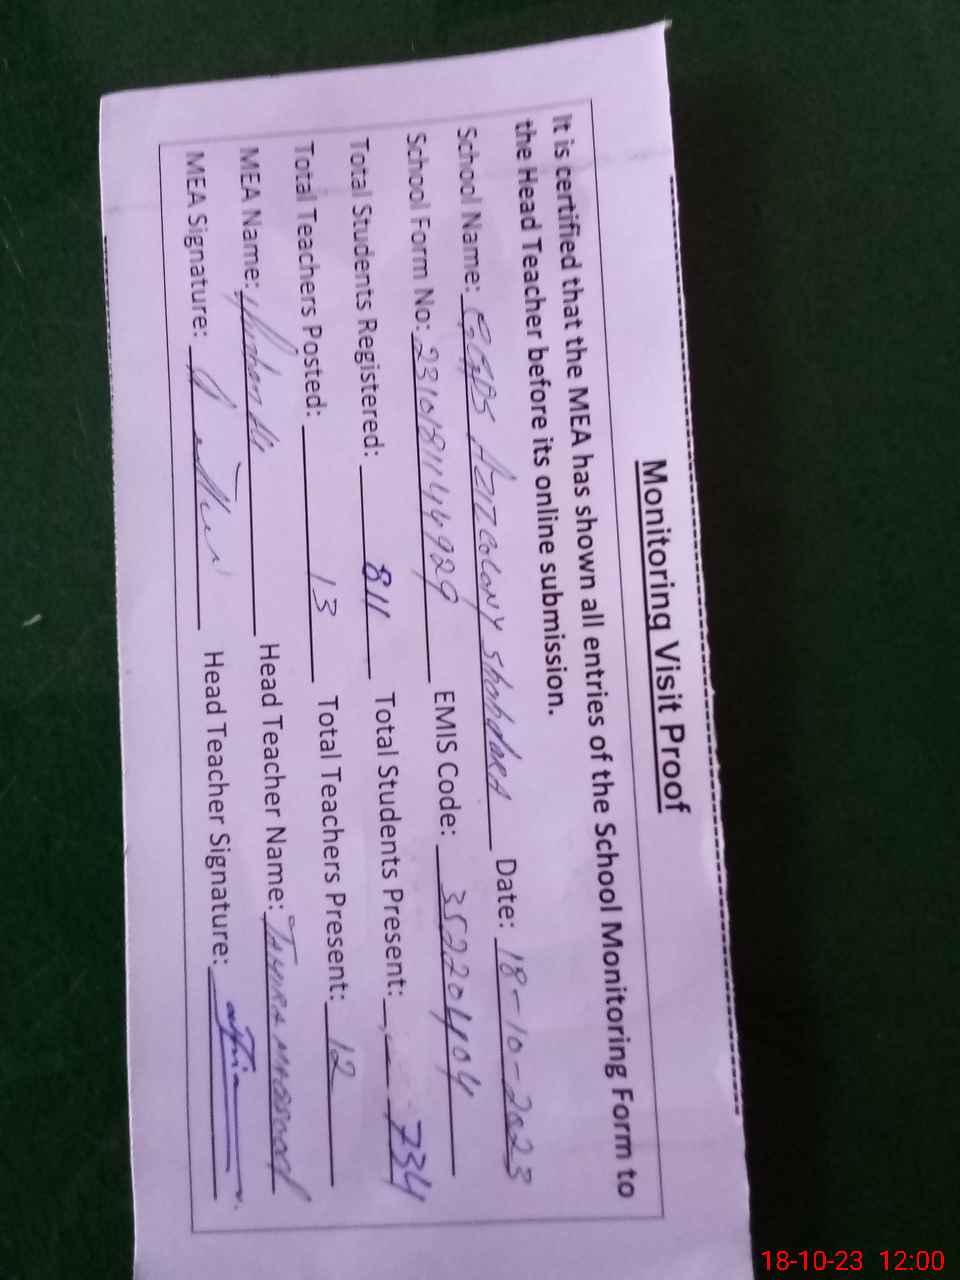 Monitoring Visit Proof
It is certified that the MEA has shown all entries of the School Monitoring Form to
the Head Teacher before its online submission.
School Name: GGPS Aziz Colony Shahdara Date: 18-10-2023
School Form No: 2310181144929 EMIS Code: 35220404
Total Students Registered: 811 Total Students Present: 734
Total Teachers Posted: 13 Total Teachers Present: 12
MEA Name: Head Teacher Name: Tahira Masood
MEA Signature: Head Teacher Signature:
18-10-23 12:00